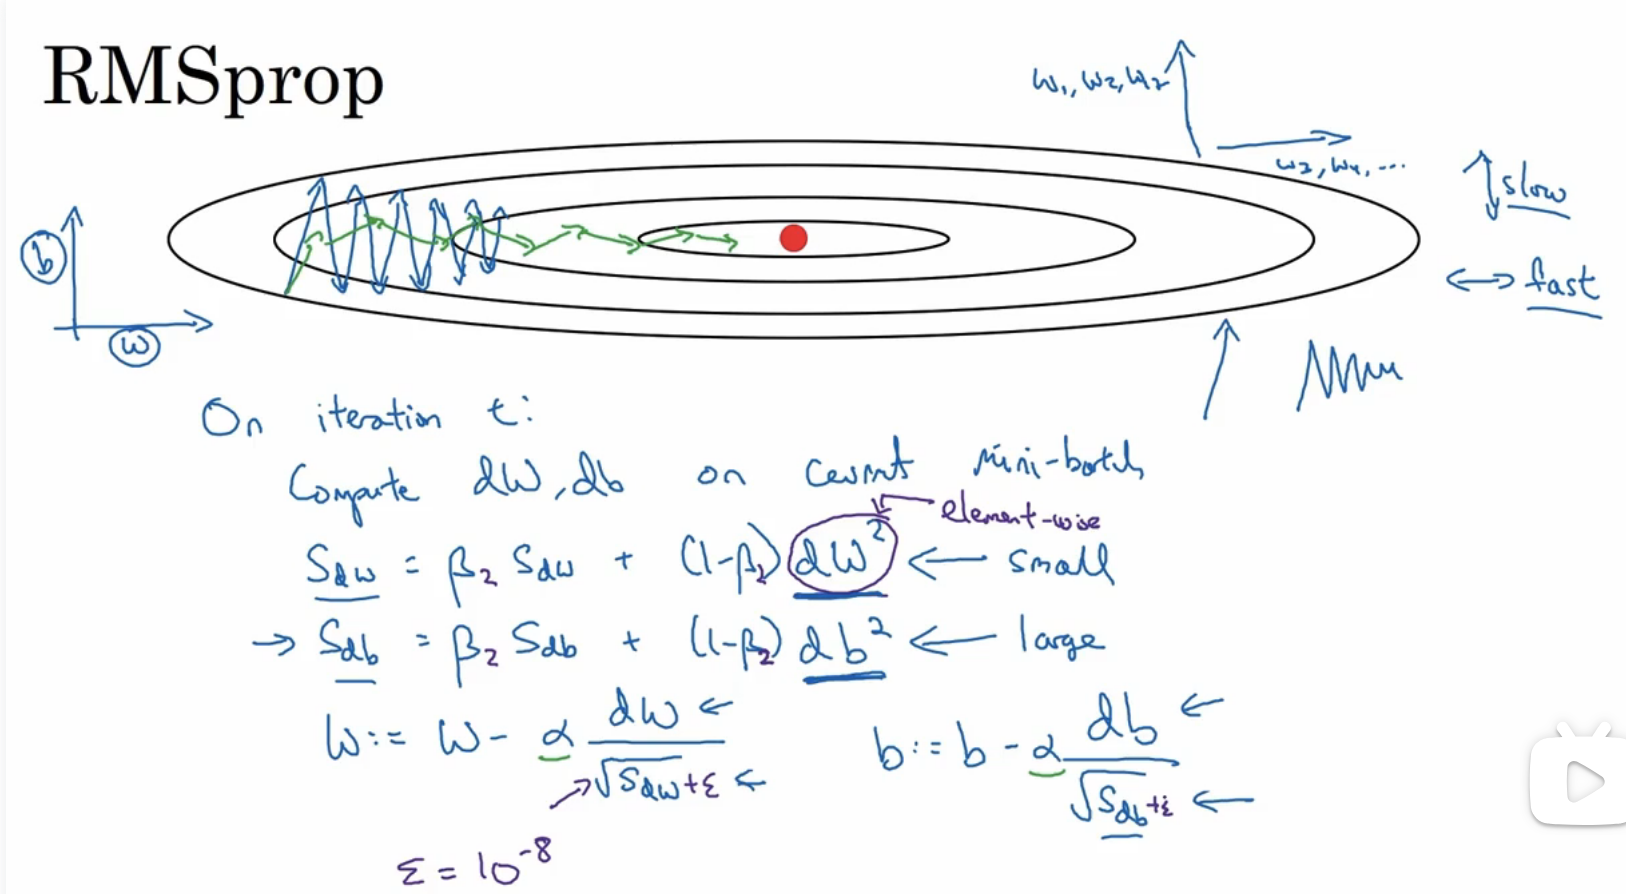 RMSprop
w₁, w₂, w₂
w₃, w₄, ...
slow
b
fast
w
On iteration t:
Compute dW, db on current mini-batch
element-wise
S_dw = β₂ S_dw + (1-β₂) dW² ← small
→ S_db = β₂ S_db + (1-β₂) db² ← large
w := w - α dw / √S_dw + ε ←
b := b - α db / √S_db + ε ←
ε = 10⁻⁸